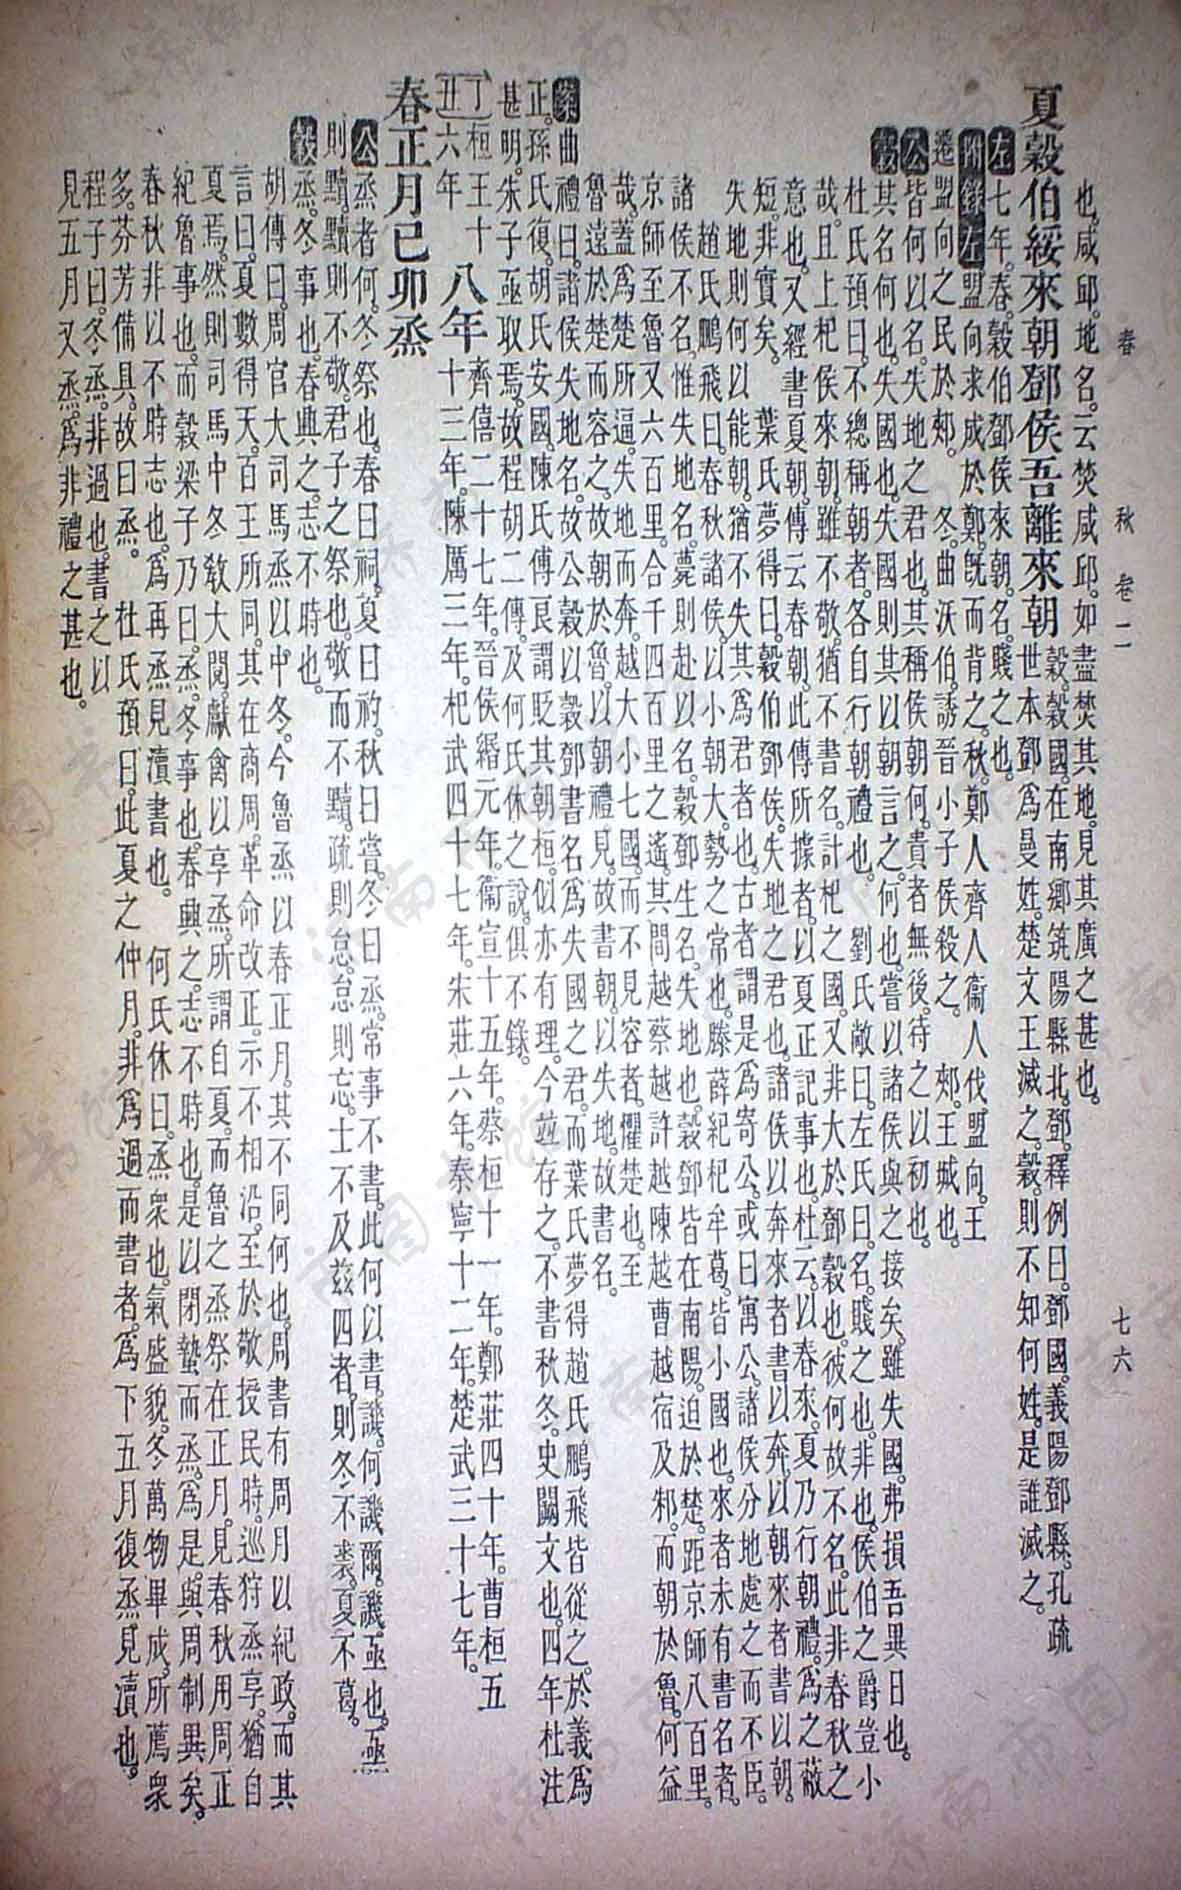 春 秋 卷二 七六
也。咸邱。地名。云焚咸邱。如盡焚其地。見其廣之甚也。
夏穀伯綏來朝鄧侯吾離來朝
穀。穀國。在南鄉筑陽縣北。鄧。釋例曰。鄧國。義陽鄧縣。孔疏
世本鄧爲曼姓。楚文王滅之。穀。則不知何姓。是誰滅之。
左七年。春。穀伯鄧侯來朝。名。賤之也。
附錄左盟向求成於鄭。旣而背之。秋。鄭人齊人衞人伐盟向。王
遷盟向之民於郟。 冬。曲沃伯誘晉小子侯殺之。 郟。王城也。
公皆何以名。失地之君也。其稱侯朝何。貴者無後。待之以初也。
穀其名何也。失國也。失國則其以朝言之何也。嘗以諸侯與之接矣。雖失國。弗損吾異日也。
杜氏預曰。不總稱朝者。各自行朝禮也。 劉氏敞曰。左氏曰。名。賤之也。非也。侯伯之爵豈小
哉。且上杞侯來朝。雖不敬。猶不書名。計杞之國。又非大於鄧穀也。彼何故不名。此非春秋之
意也。又經書夏朝。傳云春朝。此傳所據者。以夏正記事也。杜云。以春來。夏乃行朝禮。爲之蔽
短。非實矣。 葉氏夢得曰。穀伯鄧侯。失地之君也。諸侯以奔來者書以奔。以朝來者書以朝。
失地則何以能朝。猶不失其爲君者也。古者謂是爲寄公。或曰寓公。諸侯分地處之而不臣。
趙氏鵬飛曰。春秋諸侯。以小朝大。勢之常也。滕薛紀杞牟葛。皆小國也。來者未有書名者。
諸侯不名。惟失地名。薨則赴以名。穀鄧生名。失地也。穀鄧皆在南陽。迫於楚。距京師八百里。
京師至魯又六百里。合千四百里之遙。其間越蔡越許越陳越曹越宿及邾。而朝於魯。何益
哉。蓋爲楚所逼。失地而奔。越大小七國。而不見容者。懼楚也。至
魯遠於楚而容之。故朝於魯。以朝禮見。故書朝。以失地。故書名。
案曲禮曰。諸侯失地名。故公穀以穀鄧書名爲失國之君。而葉氏夢得趙氏鵬飛皆從之。於義爲
正。孫氏復。胡氏安國。陳氏傅良謂貶其朝桓。似亦有理。今並存之。不書秋冬。史闕文也。四年杜注
甚明。朱子亟取焉。故程胡二傳。及何氏休之說。俱不錄。
丁丑 桓王十六年 八年 齊僖二十七年。晉侯緡元年。衞宣十五年。蔡桓十一年。鄭莊四十年。曹桓五
十三年。陳厲三年。杞武四十七年。宋莊六年。秦寧十二年。楚武三十七年。
春正月己卯烝
公烝者何。冬祭也。春曰祠。夏曰礿。秋曰嘗。冬曰烝。常事不書。此何以書。譏。何譏爾。譏亟也。亟
則黷。黷則不敬。君子之祭也。敬而不黷。疏則怠。怠則忘。士不及茲四者。則冬不裘。夏不葛。
穀烝。冬事也。春興之。志不時也。
胡傳曰。周官大司馬烝以中冬。今魯烝以春正月。其不同何也。周書有周月以紀政。而其
言曰。夏數得天。百王所同。其在商周。革命改正。示不相沿。至於敬授民時。巡狩烝享。猶自
夏焉。然則司馬中冬敎大閱。獻禽以享烝。所謂自夏。而魯之烝祭在正月。見春秋用周正
紀魯事也。而穀梁子乃曰。烝。冬事也。春興之。志不時也。是以閉蟄而烝。爲是。與周制異矣。
春秋非以不時志也。爲再烝見瀆書也。 何氏休曰。烝。衆也。氣盛貌。冬萬物畢成。所薦衆
多。芬芳備具。故曰烝。 杜氏預曰。此夏之仲月。非爲過而書者。爲下五月復烝見瀆也。
程子曰。冬烝。非過也。書之以
見五月又烝。爲非禮之甚也。